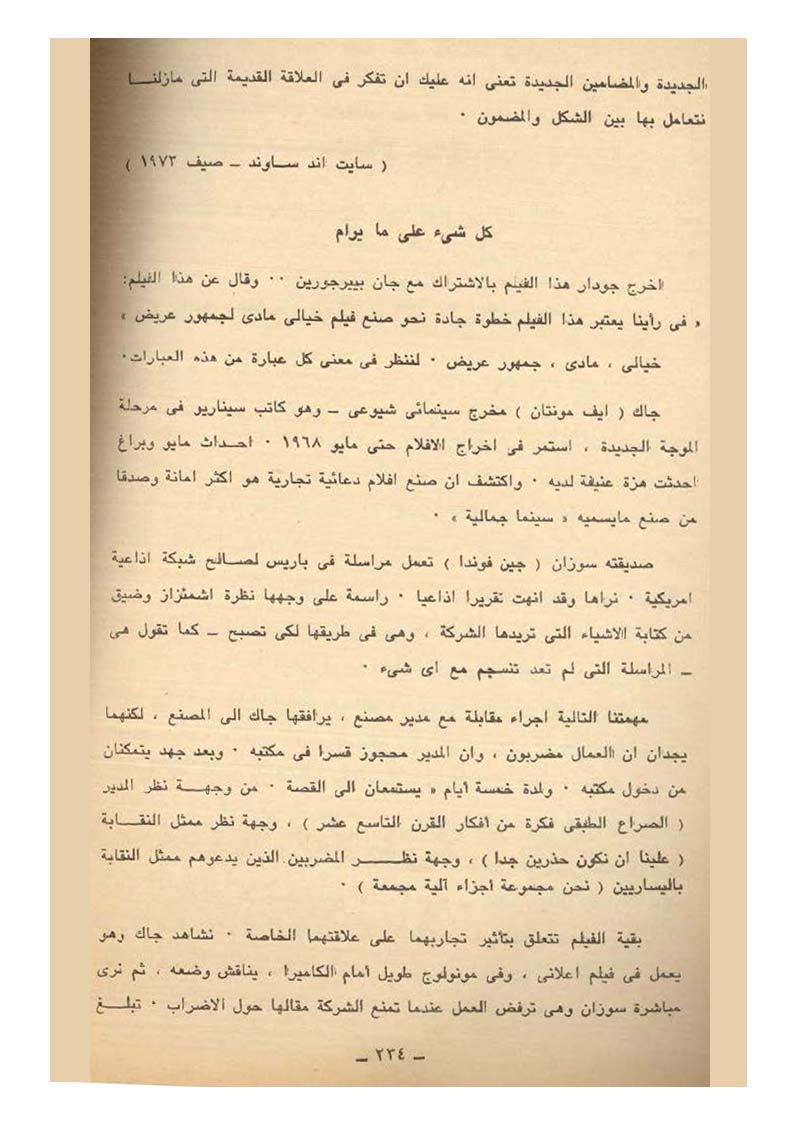 الجديدة والمضامين الجديدة تعنى انه عليك ان تفكر فى العلاقة القديمة التى مازلنا
نتعامل بها بين الشكل والمضمون ٠
( سايت اند ساوند – صيف ١٩٧٣ )
كل شىء على ما يرام
اخرج جودار هذا الفيلم بالاشتراك مع جان بييرجورين ٠٠ وقال عن هذا الفيلم:
« فى رأينا يعتبر هذا الفيلم خطوة جادة نحو صنع فيلم خيالى مادى لجمهور عريض »
خيالى ، مادى ، جمهور عريض ٠ لننظر فى معنى كل عبارة من هذه العبارات٠
جاك ( ايف مونتان ) مخرج سينمائى شيوعى – وهو كاتب سيناريو فى مرحلة
الموجة الجديدة ، استمر فى اخراج الافلام حتى مايو ١٩٦٨ ٠ احداث مايو وبراغ
احدثت هزة عنيفة لديه ٠ واكتشف ان صنع افلام دعائية تجارية هو اكثر امانة وصدقا
من صنع مايسميه « سينما جمالية » ٠
صديقته سوزان ( جين فوندا ) تعمل مراسلة فى باريس لصالح شبكة اذاعية
امريكية ٠ نراها وقد انهت تقريرا اذاعيا ٠ راسمة على وجهها نظرة اشمئزاز وضيق
من كتابة الاشياء التى تريدها الشركة ، وهى فى طريقها لكى تصبح – كما تقول هى
– المراسلة التى لم تعد تنسجم مع اى شىء ٠
مهمتنا التالية اجراء مقابلة مع مدير مصنع ، يرافقها جاك الى المصنع ، لكنهما
يجدان ان العمال مضربون ، وان المدير محجوز قسرا فى مكتبه ٠ وبعد جهد يتمكنان
من دخول مكتبه ٠ ولمدة خمسة أيام « يستمعان الى القصة ٠ من وجهة نظر المدير
( الصراع الطبقى فكرة من أفكار القرن التاسع عشر ) ، وجهة نظر ممثل النقابة
( علينا ان نكون حذرين جدا ) ، وجهة نظر المضربين الذين يدعوهم ممثل النقابة
باليساريين ( نحن مجموعة أجزاء آلية مجمعة ) ٠
بقية الفيلم تتعلق بتأثير تجاربهما على علاقتهما الخاصة ٠ نشاهد جاك وهو
يعمل فى فيلم اعلانى ، وفى مونولوج طويل أمام الكاميرا ، يناقش وضعه ، ثم نرى
مباشرة سوزان وهى ترفض العمل عندما تمنع الشركة مقالها حول الاضراب ٠ تبلغ
– ٢٣٤ –